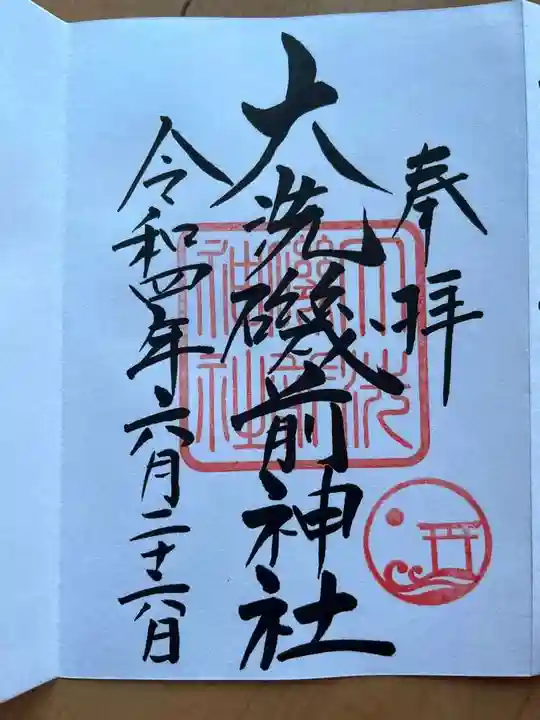 奉拝
大洗磯前神社
大洗磯前神社
令和四年六月二十六日